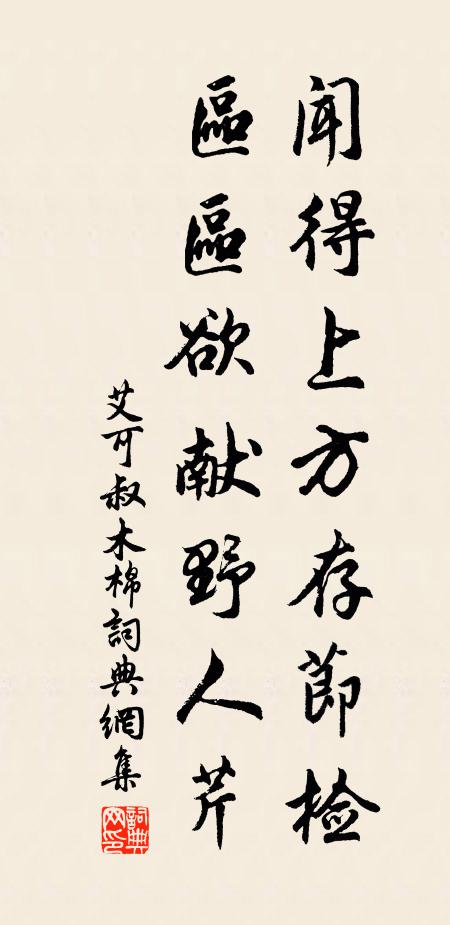 闻得上方存節检
區區欲献野人芹
艾可叔木棉詞典網集
詞典网印